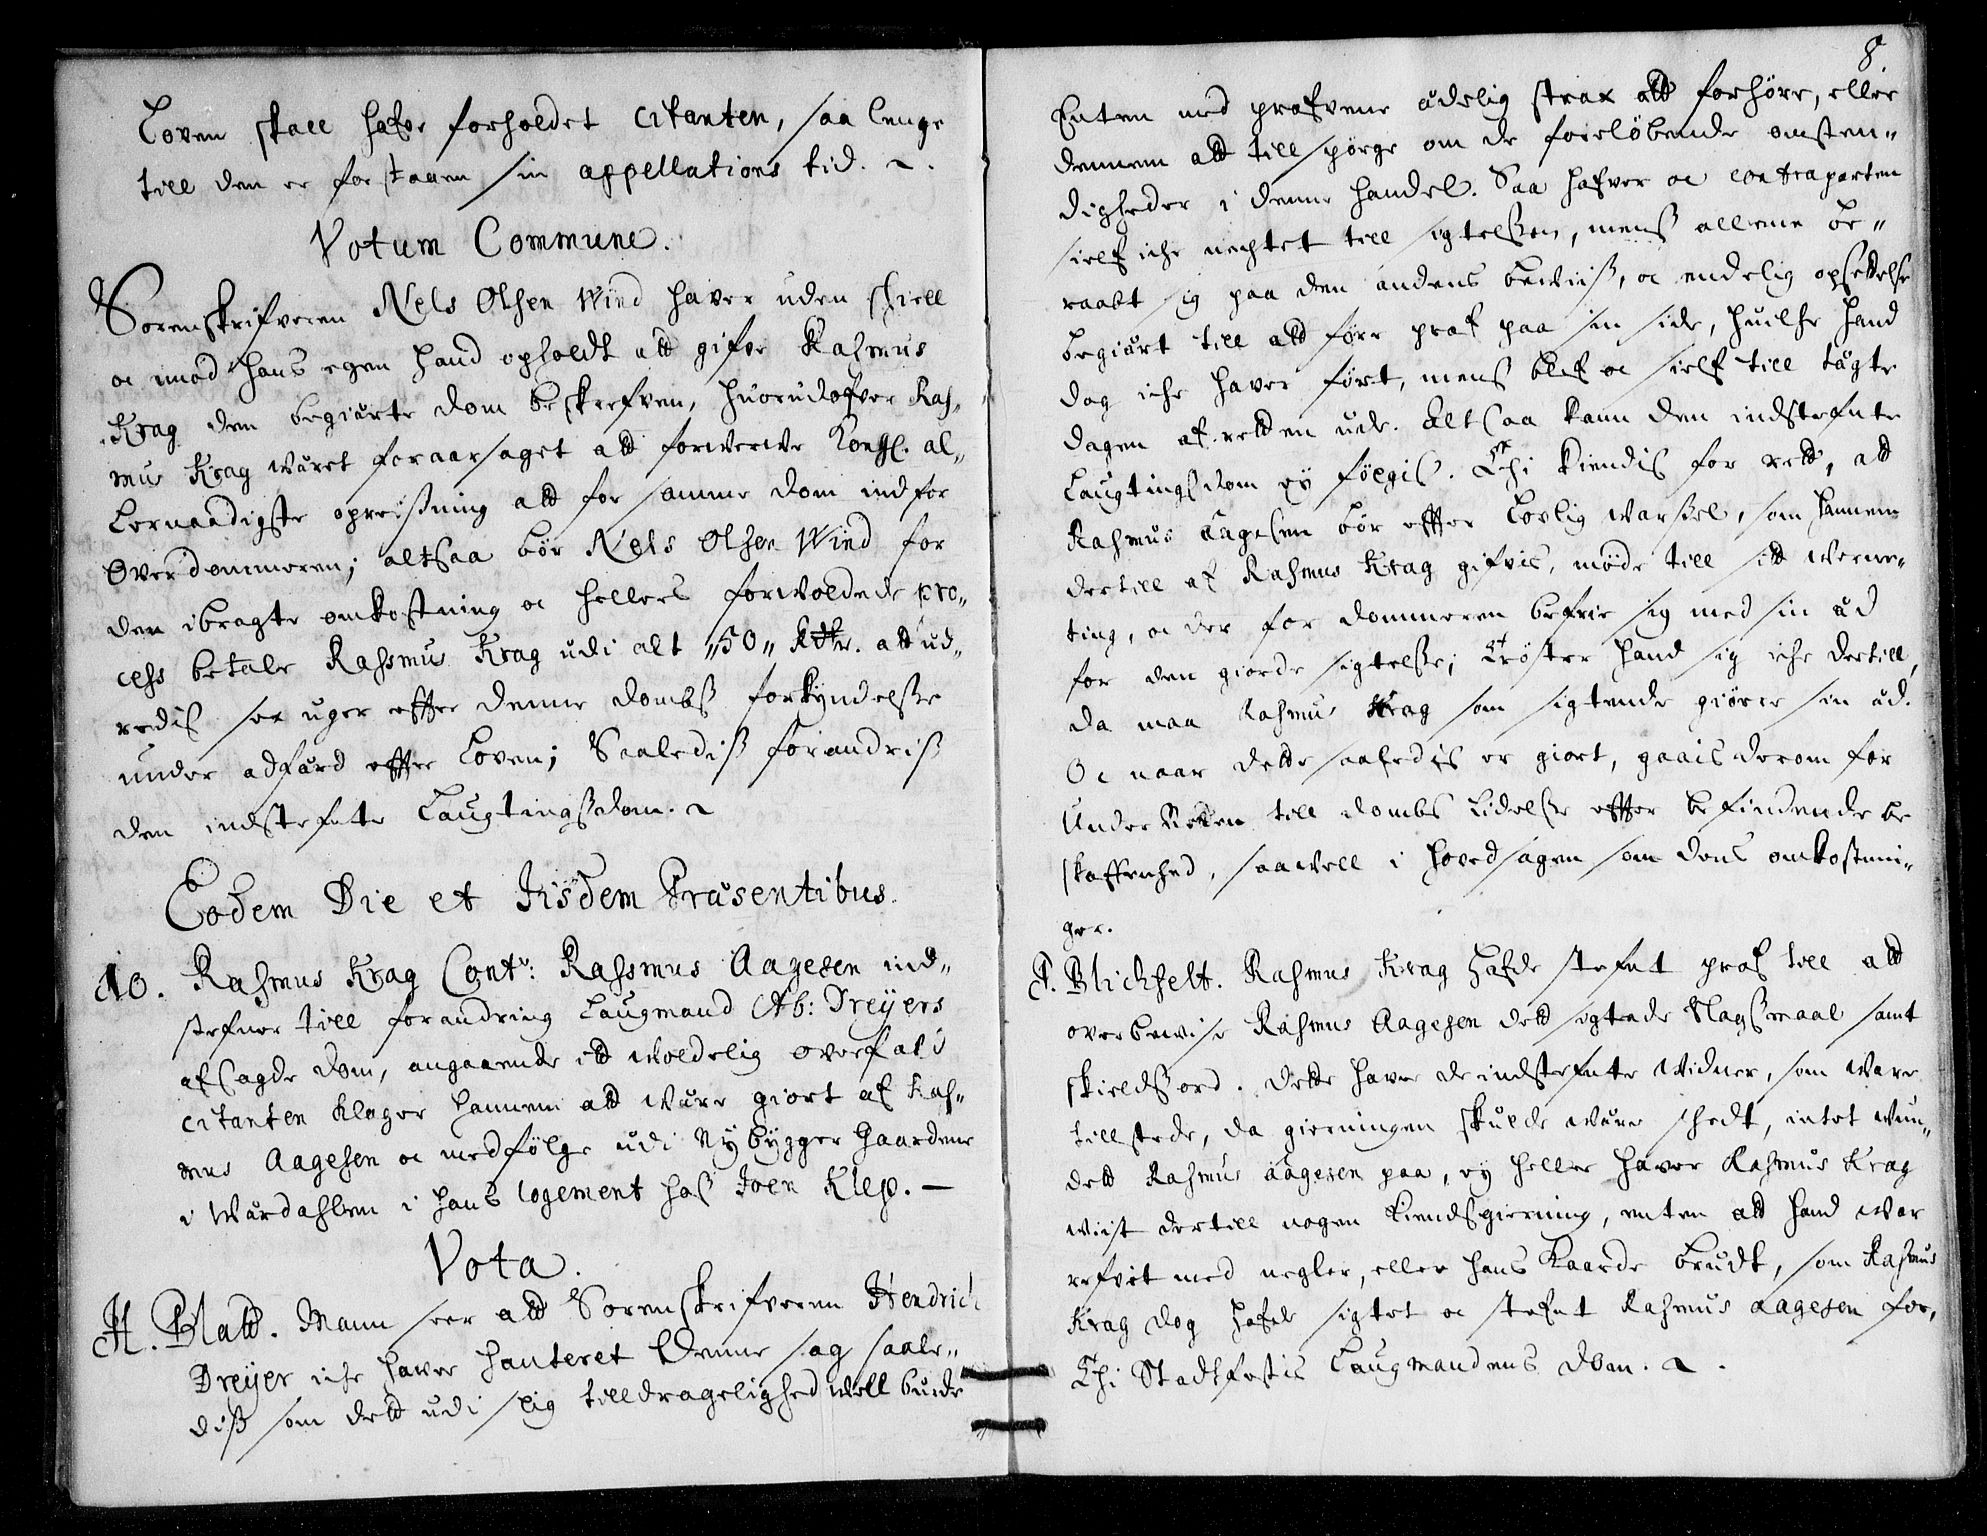 Loven skall hafve forholdet Citanten, saa lenge
till den er forstagen sin appellations tid.
Votum Commune.
Sorenskrifveren Nels Olsen Wind haver uden skiell
oc imod hans egen haand opholdt att gifve Rasmus
Krag den begiærte dom beskrefven, huorudofver Ras„
mus Krag været foraarsaget att forwerve Kongl. al„
lernaadigste opreisning att for samme dom indfor
Overdommeren; altsaa bør Nels Olsen Wind for
den ibragte omkostning oc hellers forvoldede pro„
cess betale Rassmus Krag udi alt „50„ Rdlr. att ud„
redis sex uger effter denne dombs forkyndelsse
under adfærd effter Loven; Saalediss forandriss
den indstefnte Laugtingssdom.
Eodem Die et Iisdem Præsentibus.
10. Rasmus Krag Contr: Rassmus Aagesen ind„
stefner till forandring Laugmand Ab: Dreyers
afsagde dom, angaaende ett woldelig overfald
citanten klager hannem att wære giort af Ras„
mus Aagesen oc medfølge udi Nybygger Gaardene
i Wærdahlen i hans logement hos Joen Klep. —
Vota.
H. Blatt. Mann seer att Sorenskrifveren Hendrich
Dreyer iche haver hanteret denne sag saale„
diss som dett udi slig tilldragelighed well burde
8.
Enten med profvene ædelig strax att forhøre, eller
dennem att till spørge om de foreløbende omsten„
digheder i denne handel. Saa hafver oc contraparten
sielf iche nechtet till sigtelssen, mens allene be„
raabt sig paa den andens bewiiss, oc endelig opsettelse
begiært till att føre prof paa sin side, huilche hand
dog iche haver ført, mens blef oc sielf till tægte
dagen af retten ude. Altsaa kann den indstefnte
Laugtingsdom ey følgis. Thi kiendis for rett, att
Rasmus Aagesen bør effter Lovlig warssel, som hannem
dertill af Rasmus Krag gifvis, møde till sitt werne„
ting, oc der for dommeren befrie sig med sin æd
for den giorde sigtelsse; Trøster hand sig iche dertill,
da maa Rasmus Krag som sigtende giøre sin æd.
Oc naar dette saaledis er giort, gaais derom for
Under Retten till dombs lidelsse effter befindende be
skaffenhed, saawell i hovedsagen som dens omkostnin„
ger.
P. Blichfelt. Rasmus Krag hafde stefnt prof till att
overbewise Rasmus Aagesen dett sigtede Slagssmaal samt
skieldssord. Dette haver de indstefnte Widner, som ware
tillstede, da gierningen skulde være skedt, intet wun„
dett Rasmus Aagesen paa, ey heller haver Rasmus Krag
wiist dertill nogen kiendsgierning, enten att hand war
refvet med negler, eller hans Kaarde brudt, som Rasmus
Krag dog hafde sigtet oc stefnt Rasmus Aagesen for,
Thi Stadtfestis Laugmandens dom.